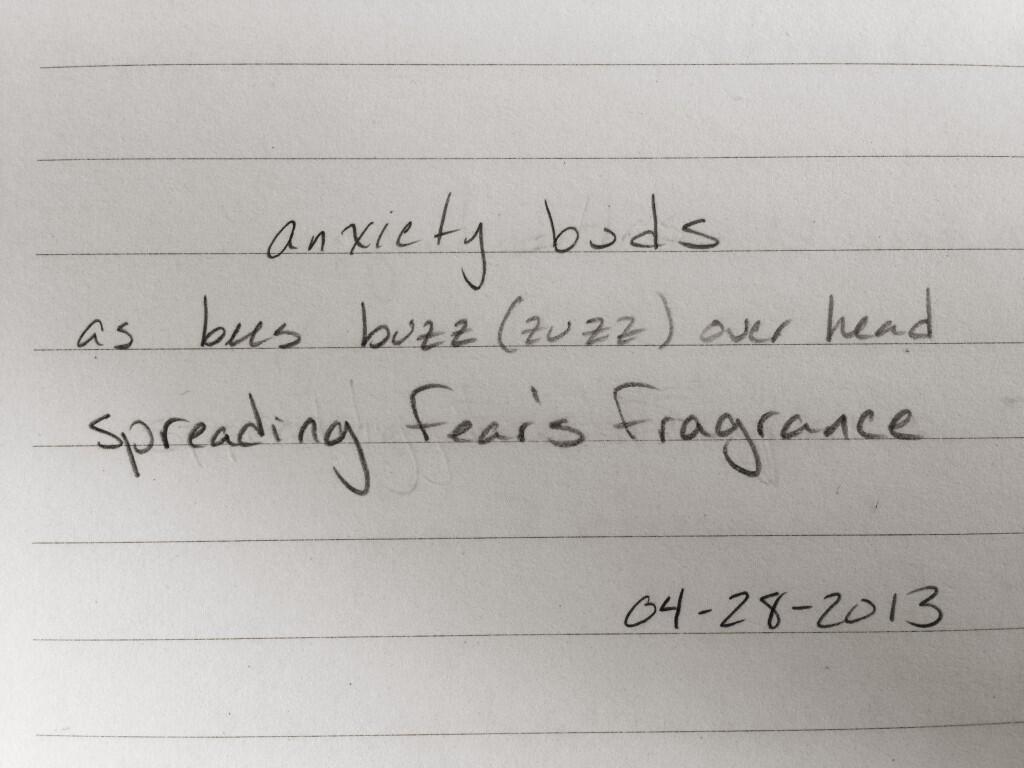 anxiety buds
as bees buzz (zuzz) over head
spreading fear's fragrance
04-28-2013